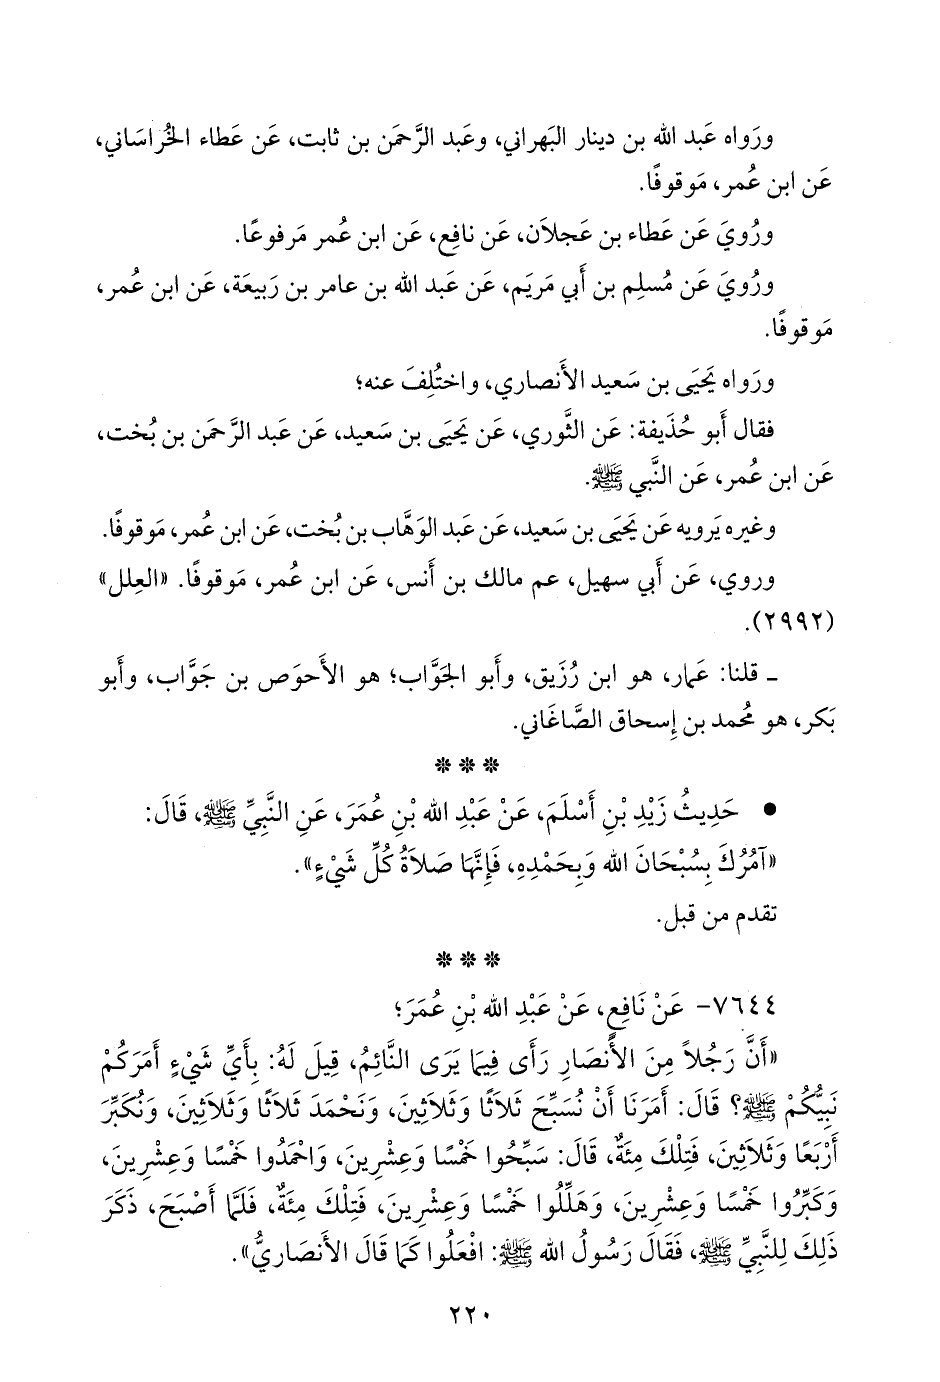 ورَواه عَبد الله بن دينار البَهراني، وعَبد الرَّحمَن بن ثابت، عَن عَطاء الخُراسَاني،
عَن ابن عُمر، مَوقوفًا.
ورُويَ عَن عَطاء بن عَجلاَن، عَن نافِع، عَن ابن عُمر مَرفوعًا.
ورُويَ عَن مُسلِم بن أَبي مَريَم، عَن عَبد الله بن عامر بن رَبيعَة، عَن ابن عُمر،
مَوقوفًا.
ورَواه يَحيَى بن سَعيد الأَنصاري، واختُلِفَ عنه؛
فقال أَبو حُذَيفة: عَن الثَّوري، عَن يَحيَى بن سَعيد، عَن عَبد الرَّحمَن بن بُخت،
عَن ابن عُمر، عَن النَّبي ﷺ.
وغيره يَرويه عَن يَحيَى بن سَعيد، عَن عَبد الوَهَّاب بن بُخت، عَن ابن عُمر، مَوقوفًا.
وروي، عَن أَبي سهيل، عم مالك بن أَنس، عَن ابن عُمر، مَوقوفًا. «العِلل»
(٢٩٩٢).
ـ قلنا: عَمار، هو ابن رُزَيق، وأَبو الجَوَّاب؛ هو الأَحوَص بن جَوَّاب، وأَبو
بَكر، هو مُحمد بن إِسحاق الصَّاغَاني.
* * *
● حَدِيثُ زَيْدِ بْنِ أَسْلَمَ، عَنْ عَبْدِ الله بْنِ عُمَرَ، عَنِ النَّبِيِّ ﷺ، قَالَ:
«آمُرُكَ بِسُبْحَانَ الله وَبِحَمْدِهِ، فَإِنَّهَا صَلاَةُ كُلِّ شَيْءٍ».
تقدم من قبل.
* * *
٧٦٤٤- عَنْ نَافِعٍ، عَنْ عَبْدِ الله بْنِ عُمَرَ؛
«أَنَّ رَجُلاً مِنَ الأَنصَارِ رَأى فِيمَا يَرَى النَّائِمُ، قِيلَ لَهُ: بِأَيِّ شَيْءٍ أَمَرَكُمْ
نَبِيُّكُمْ ﷺ؟ قَالَ: أَمَرَنَا أَنْ نُسَبِّحَ ثَلاَثًا وَثَلاَثِينَ، وَنَحْمَدَ ثَلاَثًا وَثَلاَثِينَ، وَنُكَبِّرَ
أَرْبَعًا وَثَلاَثِينَ، فَتِلْكَ مِئَةٌ، قَالَ: سَبِّحُوا خَمْسًا وَعِشْرِينَ، وَاحْمَدُوا خَمْسًا وَعِشْرِينَ،
وَكَبِّرُوا خَمْسًا وَعِشْرِينَ، وَهَلِّلُوا خَمْسًا وَعِشْرِينَ، فَتِلْكَ مِئَةٌ، فَلَمَّا أَصْبَحَ، ذَكَرَ
ذَلِكَ لِلنَّبِيِّ ﷺ، فَقَالَ رَسُولُ الله ﷺ: افْعَلُوا كَمَا قَالَ الأَنصَارِيُّ».
٢٢٠